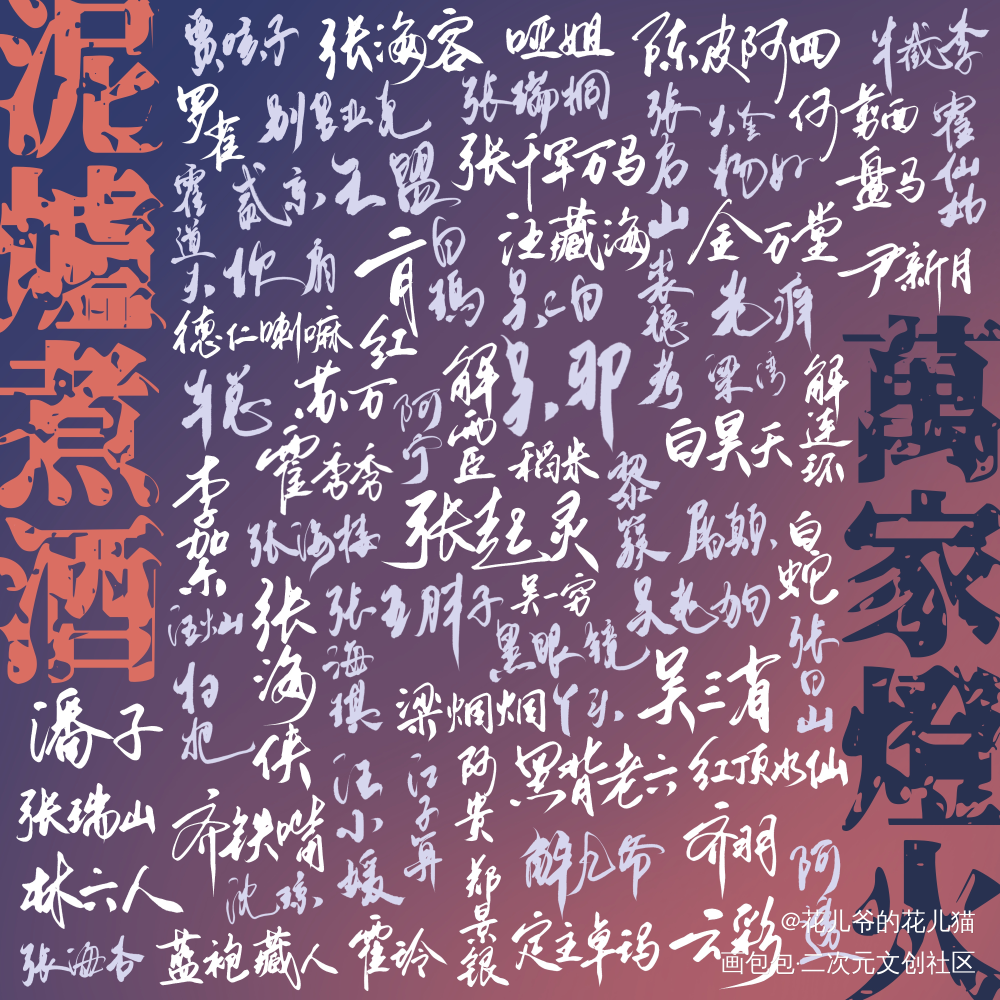 泥墟煮酒
萬家燈火
贾咳子
张海客
哑姐
陈皮阿四
半截李
罗雀
别里亚克
张瑞桐
张大佛爷
何剪西
霍仙姑
张千军万马
盘马
霍道夫
贰京
云盟
白玛
汪藏海
金万堂
尹新月
坎肩
二月红
吴二白
裘德考
老痒
德仁喇嘛
苏万
阿宁
解雨臣
吴邪
梁湾
解连环
霍秀秀
稻米
白昊天
黎簇
李加乐
张海楼
张起灵
白蛇
张海侠
王胖子
吴一穷
吴老狗
张日山
汪灿
张海棋
黑眼镜
丫头
吴三省
扫把
梁烟烟
潘子
张瑞山
林六人
张海杏
齐铁嘴
汪小媛
江子算
阿贵
黑背老六
红顶水仙
沈琼
郑景银
解九爷
齐羽
阿透
蓝袍藏人
霍玲
定主卓玛
云彩
@花儿爷的花儿猫
画包包·二次元文创社区